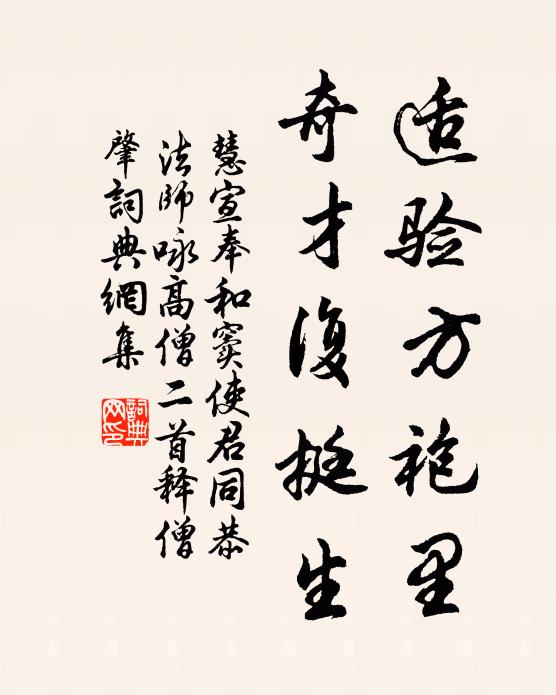 适验方袍里
奇才復挺生
慧宣奉和窦使君同恭
法师咏高僧二首释僧
肇詞典網集
詞典网印